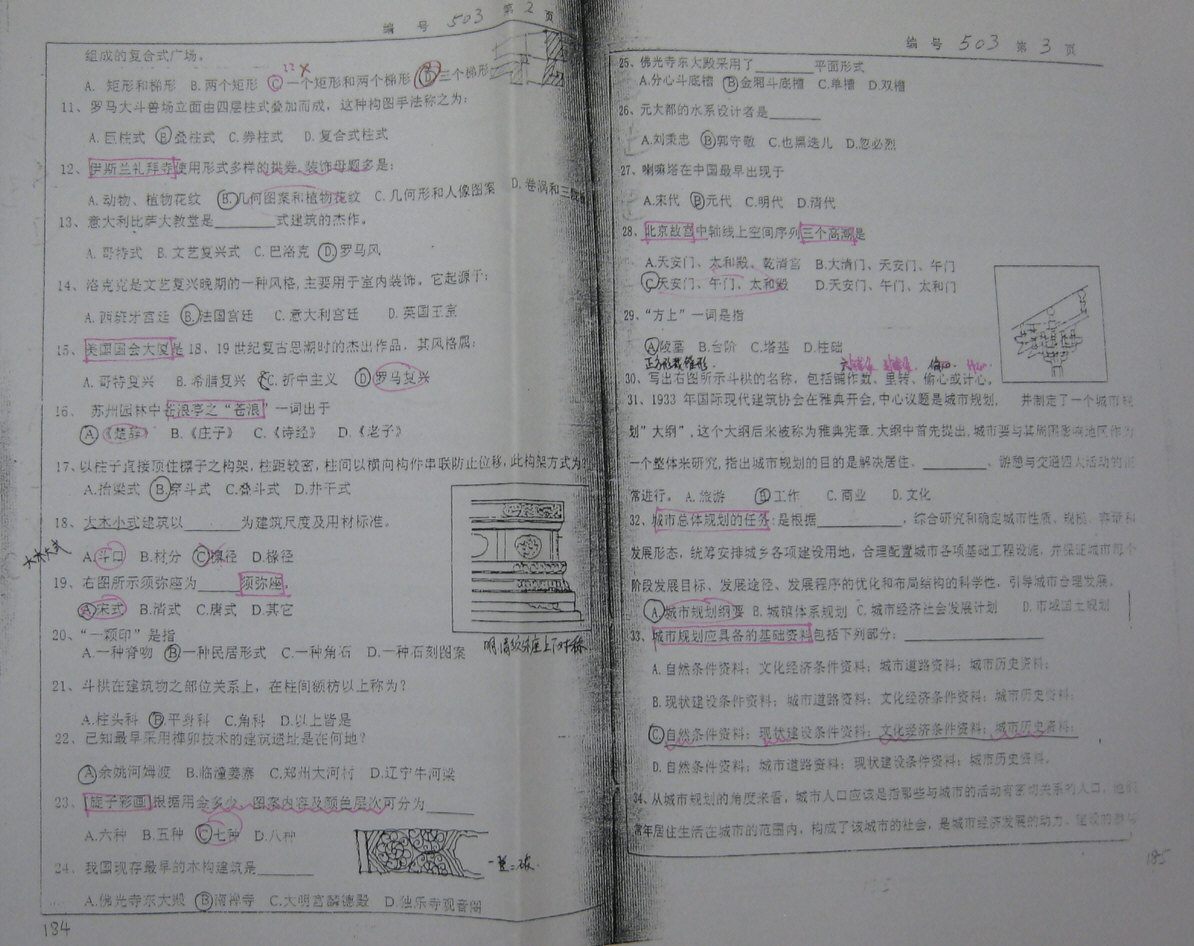 编 号 503 第 2 页
组成的复合式广场。
A. 矩形和梯形 B. 两个矩形 C 一个矩形和两个梯形 D 三个梯形
11、罗马大斗兽场立面由四层柱式叠加而成，这种构图手法称之为:
A. 巨柱式 B 叠柱式 C. 券柱式 D. 复合式柱式
12、伊斯兰礼拜寺使用形式多样的拱券，装饰母题多是:
A. 动物、植物花纹 B. 几何图案和植物花纹 C. 几何形和人像图案 D. 卷涡和三
13、意大利比萨大教堂是______式建筑的杰作。
A. 哥特式 B. 文艺复兴式 C. 巴洛克 D. 罗马风
14、洛克克是文艺复兴晚期的一种风格,主要用于室内装饰。它起源于:
A. 西班牙宫廷 B. 法国宫廷 C. 意大利宫廷 D. 英国王室
15、美国国会大厦是 18、19 世纪复古思潮时的杰出作品，其风格属:
A. 哥特复兴 B. 希腊复兴 C. 折中主义 D 罗马复兴
16、 苏州园林中苍浪亭之“苍浪”一词出于
A 《楚辞》 B.《庄子》 C.《诗经》 D.《老子》
17、以柱子直接顶住檩子之构架，柱距较密，柱间以横向构件串联防止位移，此构架方式为?
A.抬梁式 B.穿斗式 C.叠斗式 D.井干式
18、大木小式建筑以______为建筑尺度及用材标准。
大木大式
A.斗口 B.材分 C.檩径 D.椽径
19、右图所示须弥座为____须弥座。
A 宋式 B.清式 C.唐式 D.其它
明清须弥座上下对称
20、“一颗印”是指
A.一种脊吻 B 一种民居形式 C.一种角石 D.一种石刻图案
21、斗栱在建筑物之部位关系上，在柱间额枋以上称为?
A.柱头科 B 平身科 C.角科 D.以上皆是
22、已知最早采用榫卯技术的建筑遗址是在何地?
A 余姚河姆渡 B.临潼姜寨 C.郑州大河村 D.辽宁牛河梁
23、旋子彩画根据用金多少、图案内容及颜色层次可分为_____
A.六种 B.五种 C 七种 D.八种
一整二破
24、我国现存最早的木构建筑是______
A.佛光寺东大殿 B 南禅寺 C.大明宫麟德殿 D.独乐寺观音阁
184
编 号 503 第 3 页
25、佛光寺东大殿采用了______平面形式
A.分心斗底槽 B 金厢斗底槽 C.单槽 D.双槽
26、元大都的水系设计者是_____
A.刘秉忠 B 郭守敬 C.也黑迭儿 D.忽必烈
27、喇嘛塔在中国最早出现于
A.宋代 B 元代 C.明代 D.清代
28、北京故宫中轴线上空间序列三个高潮是
A.天安门、太和殿、乾清宫 B.大清门、天安门、午门
C 天安门、午门、太和殿 D.天安门、午门、太和门
29、“方上”一词是指
A 陵墓 B.台阶 C.塔基 D.柱础
正方形截锥形.
30、写出右图所示斗拱的名称，包括铺作数、里转、偷心或计心。
31、1933 年国际现代建筑协会在雅典开会,中心议题是城市规划， 并制定了一个城市规
划”大纲”,这个大纲后来被称为雅典宪章.大纲中首先提出,城市要与其周围影响地区作为
一个整体来研究,指出城市规划的目的是解决居住、______、游憩与交通四大活动的正
常进行。 A. 旅游 B 工作 C. 商业 D. 文化
32、城市总体规划的任务:是根据________，综合研究和确定城市性质、规模、容量和
发展形态，统筹安排城乡各项建设用地，合理配置城市各项基础工程设施，并保证城市每个
阶段发展目标、发展途径、发展程序的优化和布局结构的科学性，引导城市合理发展。
A 城市规划纲要 B. 城镇体系规划 C. 城市经济社会发展计划 D. 市域国土规划
33、城市规划应具备的基础资料包括下列部分: ____________
A. 自然条件资料；文化经济条件资料；城市道路资料；城市历史资料；
B. 现状建设条件资料；城市道路资料；文化经济条件资料；城市历史资料；
C 自然条件资料；现状建设条件资料；文化经济条件资料；城市历史资料；
D. 自然条件资料；城市道路资料；现状建设条件资料；城市历史资料。
34、从城市规划的角度来看，城市人口应该是指那些与城市的活动有密切关系的人口，他们
常年居住生活在城市的范围内，构成了该城市的社会，是城市经济发展的动力、建设的参与
185